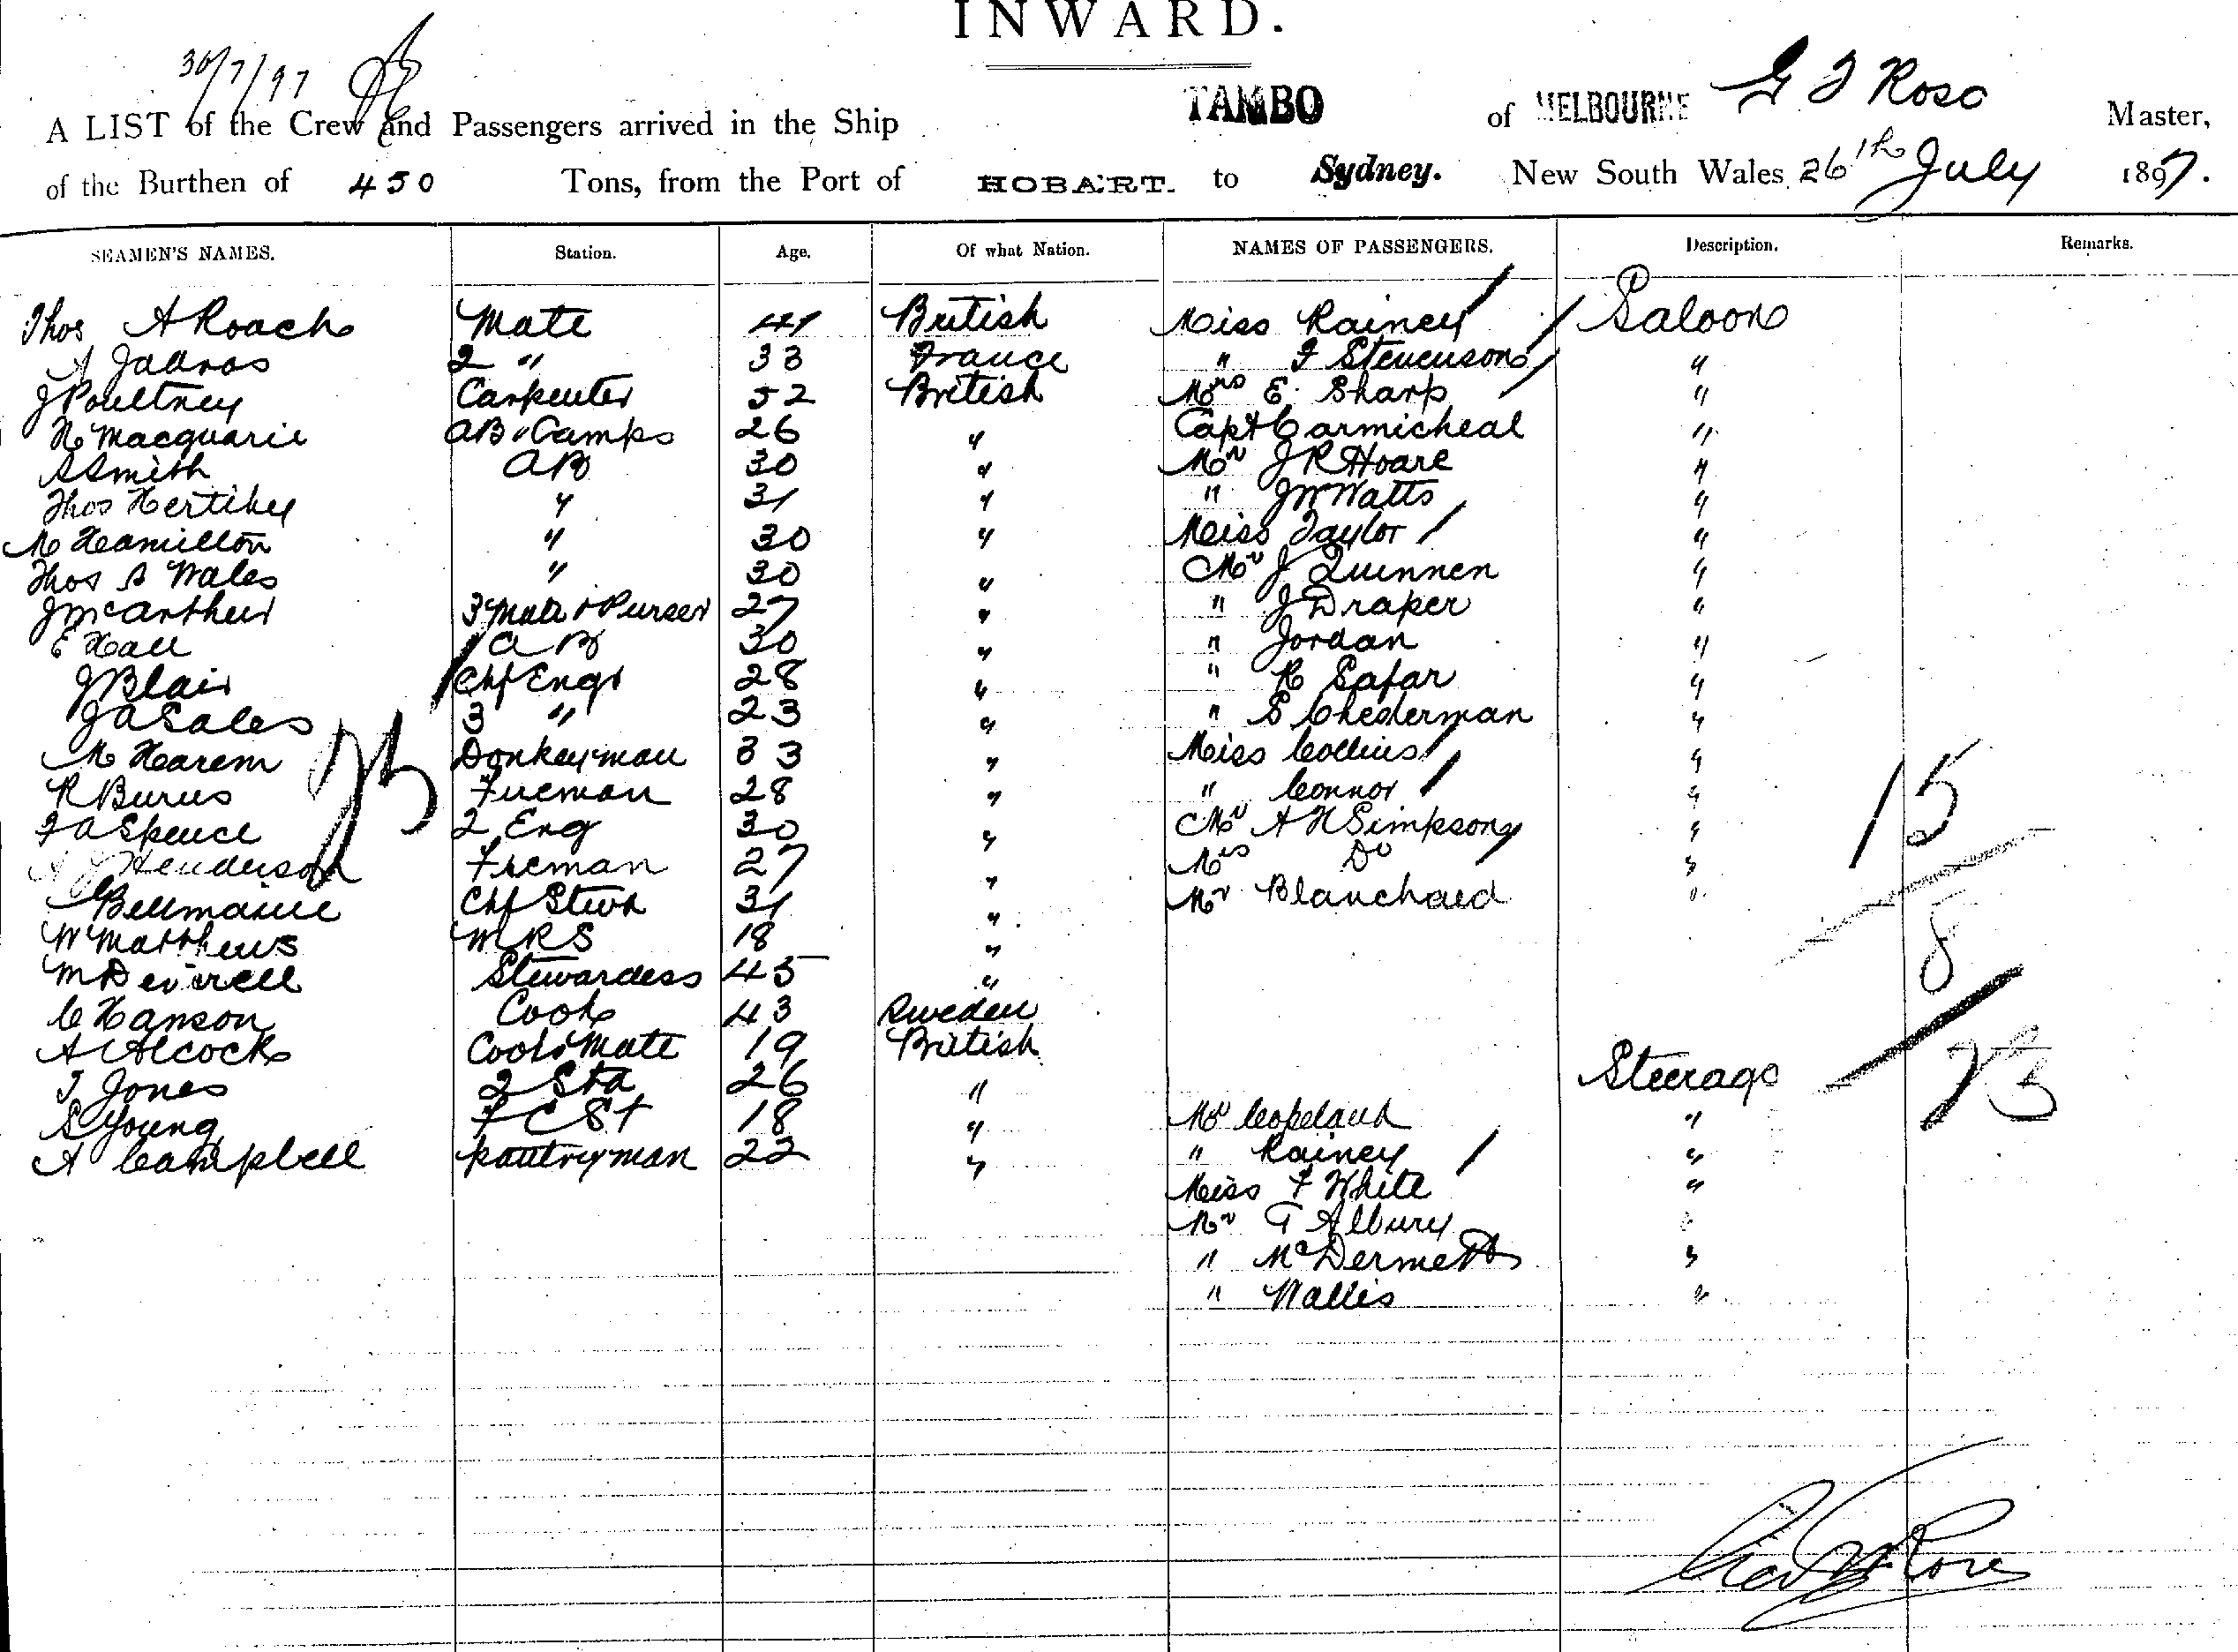 INWARD.
30/7/97
A LIST of the Crew and Passengers arrived in the Ship TAMBO of MELBOURNE G F Rose Master,
of the Burthen of 450 Tons, from the Port of HOBART. to Sydney. New South Wales 26th July 1897.
SEAMEN'S NAMES. Station. Age. Of what Nation. NAMES OF PASSENGERS. Description. Remarks.
Thos A Roach Mate 41 British Miss Rainey Saloon
A 2 " 33 France " F Stevenson "
J Poultney Carpenter 52 British Mrs E. Sharp "
N Macquarie AB & Lamps 26 " Capt Carmicheal "
S Smith AB 30 " Mr J R Hoare "
Thos Hertihey " 31 " " J W Watts "
M Hamilton " 30 " Miss Taylor "
Thos S Wales " 30 " Mr J Quinnen "
J McArthur 3 Mate & Purser 27 " " J Draper "
E Hall AB 30 " " Jordan "
J Blair Chf Engr 28 " " R Safar "
J A Sales 3 " 23 " " S Chederman "
M Harem Donkeyman 33 " Miss Collins "
R Burns Fireman 28 " " Connor "
F A Spence 2 Eng 30 " Mr A H Simpson " 15
Henderson Fireman 27 " Mrs Do "
Bellmaine Chf Stwd 31 " Mr Blanchard "
W Matthews M R S 18 " 8
M Deverell Stewardess 45 "
C Hanson Cook 43 Sweden
A Alcock Cooks Mate 19 British Steerage 23
T Jones 2 Std 26 "
S Young F C St 18 " Mr Copeland "
A Campbell pantryman 22 " " Rainey "
Miss F White "
Mr T Albury "
" McDermott "
" Wallis "
Geo F Rose